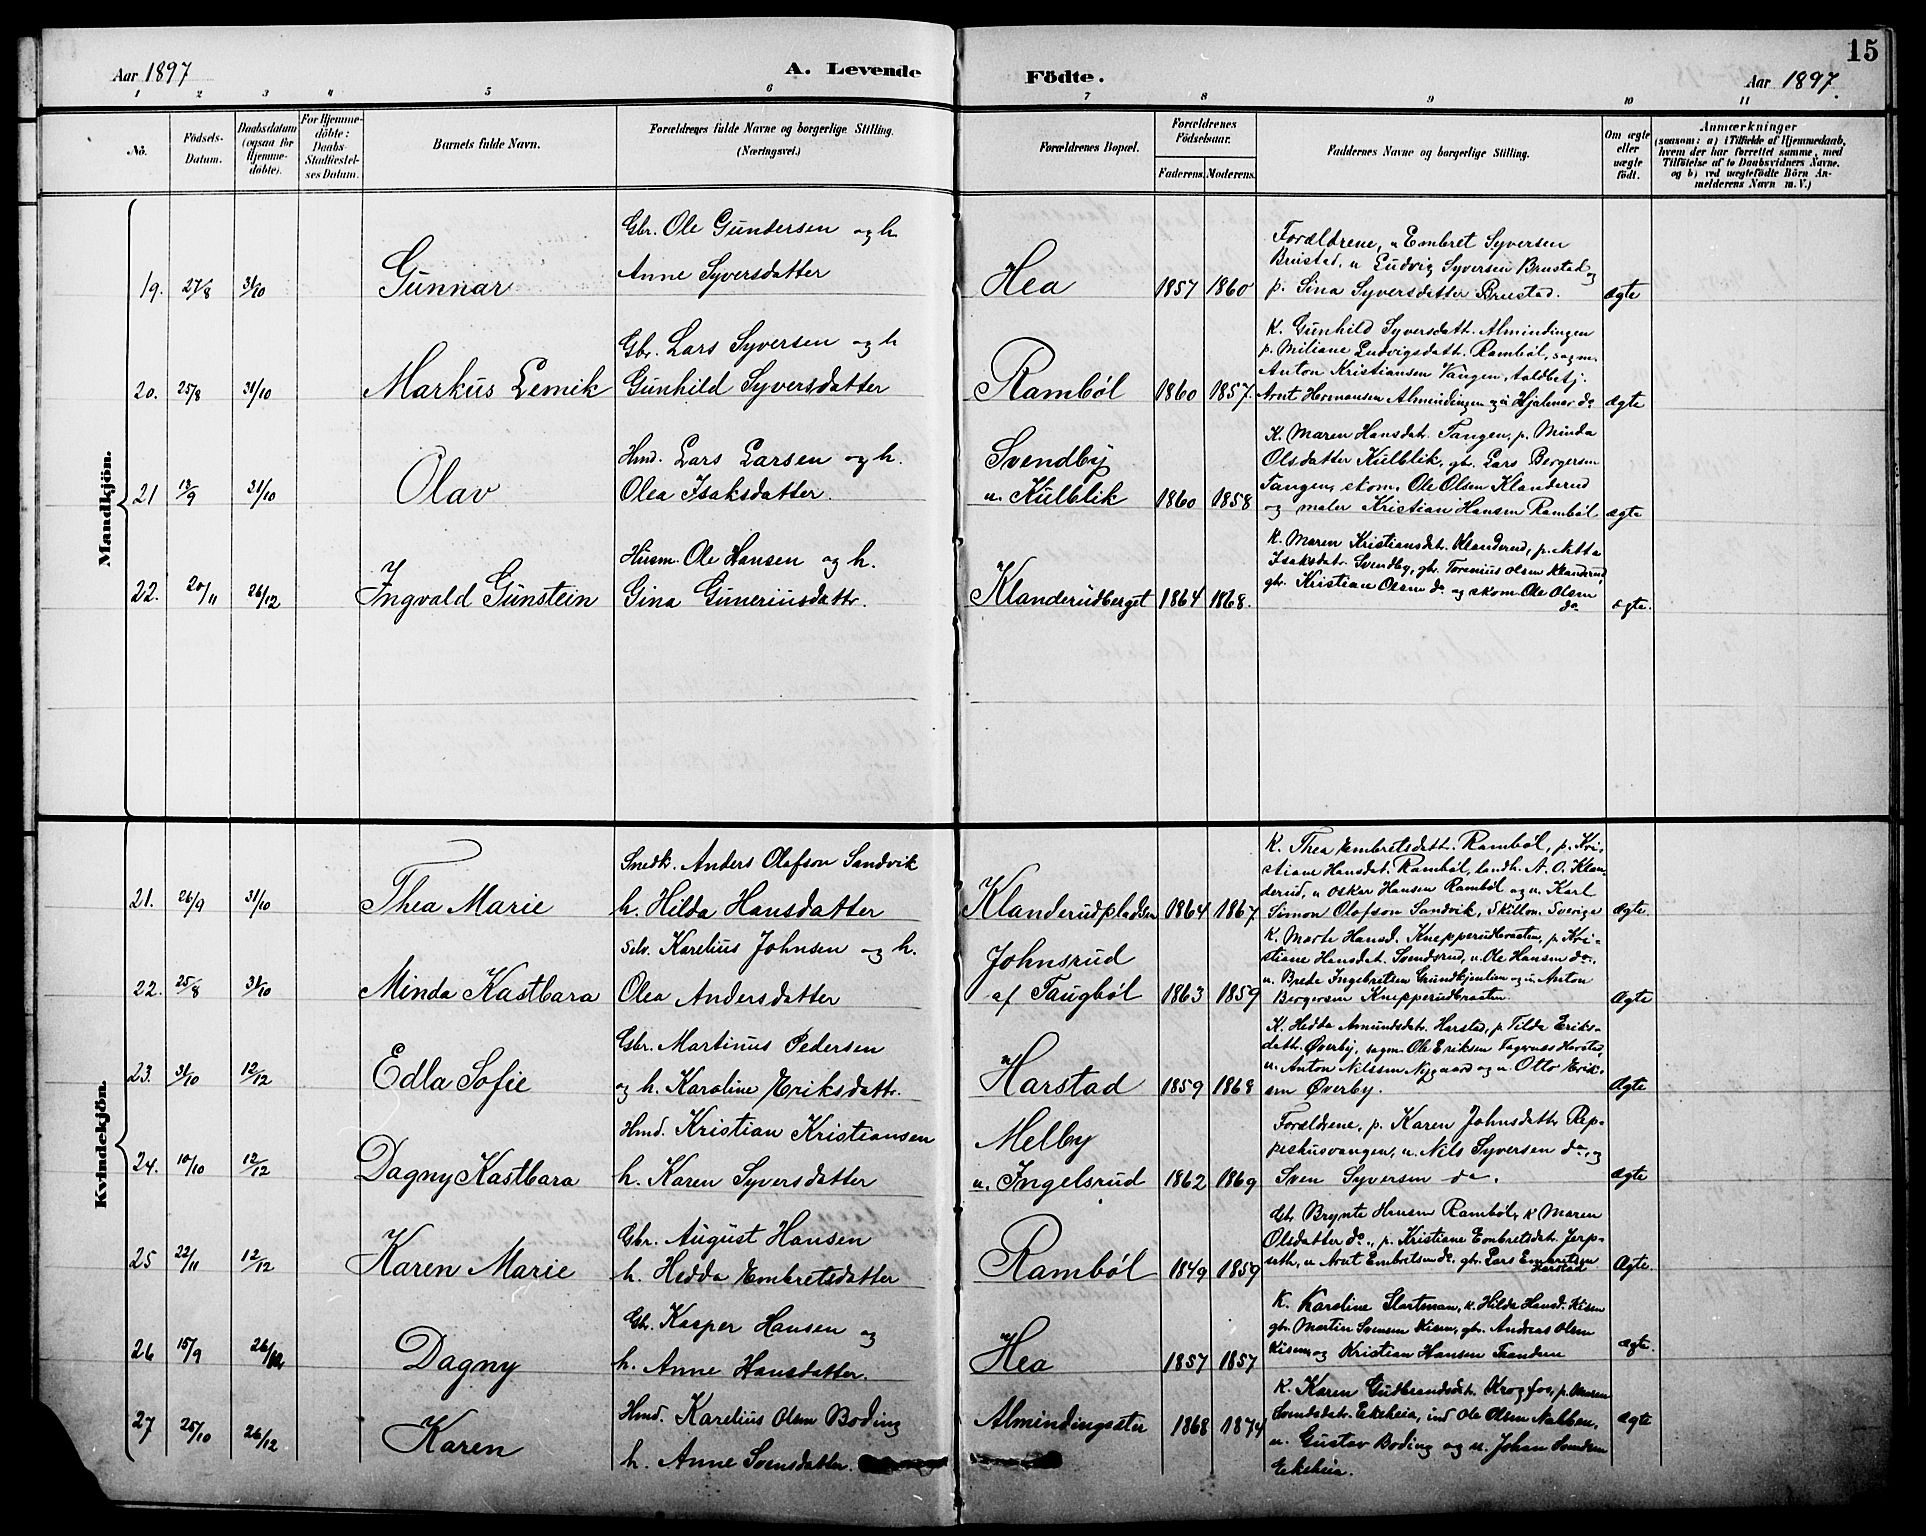 15
Aar 1897
A. Levende
Födte.
Aar 1897.
1 2 3 4 5 6 7 8 9 10 11
No.
Födsels-Datum.
Daabsdatum (ogsaa for Hjemmedöbte).
For Hjemmedöbte: Daabs-Stadfæstelses Datum.
Barnets fulde Navn.
Forældrenes fulde Navne og borgerlige Stilling. (Næringsvei.)
Forældrenes Bopæl.
Forældrenes Födselsaar.
Faderens. Moderens.
Faddernes Navne og borgerlige Stilling.
Om ægte eller uægte födt.
Anmærkninger
(saasom: a) i Tilfælde af Hjemmedaab,
hvem der har forrettet samme, med
Tilföielse af to Daabsvidners Navne.
og b) ved uægtefödte Börn An-
melderens Navn m. V.)
Mandkjön.
19. 27/8 31/10 Gunnar
Gbr. Ole Gundersen og h.
Anne Syversdatter
Hea 1857 1860
Forældrene, u Embret Syversen
Brustad, u Ludvig Syversen Brustad og
p. Sina Syversdatter Brustad.
ægte
20. 25/8 31/10 Markus Lemik
Gbr. Lars Syversen og h
Gunhild Syversdatter
Rambøl 1860 1857.
K. Gunhild Syversdatt. Almindingen
p. Miliane Ludvigsdatt. Rambøl, sagm.
Anton Kristiansen Vangen,
Arnt Hermansen Almindingen og u Hjalmar do
ægte
21 13/9 31/10 Olav
Hmd. Lars Larsen og h.
Olea Isaksdatter.
Svendby
u. Kulblik 1860 1858
K. Maren Hansdatr. Tangen, p. Minda
Olsdatter Kulblik, gb. Lars Bergersen
Tangen, skom. Ole Olsen Klanderud
og maler Kristian Hansen Rambøl
ægte
22. 20/11 26/12 Ingvald Gunstein
Husm. Ole Hansen og h.
Gina Guneriusdattr.
Klanderudberget 1864 1868.
K. Maren Kristiansdt. Klanderud, p. Netta
Isaksdatr Svendby, gbr Torenius Olsen Klanderud,
gbr. Kristian Olsen do og skom. Ole Olsen
do
ægte.
Kvindekjön.
21. 26/9 31/10 Thea Marie
Snedk. Anders Olafson Sandvik
h. Hilda Hansdatter
Klanderudpladsen 1864 1867
K. Thea Embretsdatt. Rambøl, p. Kri-
stiane Hansdat. Rambøl, landh. A. O. Klan
derud, u Oskar Hansen Rambøl og u. Karl
Simon Olafson Sandvik, Skillon. Sverige
ægte
22. 25/8 31/10 Minda Kastbara
Selv. Karelius Johnsen og h.
Olea Andersdatter
Johnsrud
af Taugbøl 1863 1859
K. Marte Hansd. Knepperudbraaten, p. Kri-
stiane Hansdat. Svendsrud, u. Ole Hansen do.,
u. Brede Ingebretsen Grundkjenlien og u. Anton
Bergersen Knepperudbraaten.
Ægte
23. 31/10 12/12 Edla Sofie
Gbr. Martinus Pedersen
og h. Karoline Eriksdattr.
Harstad 1859 1868
K. Hedda Amundsdatr. Harstad, p Tilda Eriks-
datt. Øverby, sagm Ole Eriksen Harstad,
u. Anton Nilssen Nygaard og u. Otto Erik-
sen Øverby.
Ægte
24. 10/10 12/12 Dagny Kastbara
Hmd. Kristian Kristiansen
h. Karen Syversdatter
Melby
u. Ingelsrud 1862 1869
Forældrene, p. Karen Johnsdattr Rep-
peshusvangen, u. Nils Syversen do., og
Sven Syversen do.
Ægte
25 22/11 12/12 Karen Marie
Gbr. August Hansen
h. Hedda Embretsdatter
Rambøl 1849 1859
Gbr Brynte Hansen Rambøl, K Maren
Olsdatter do., p. Kristiane Embretsdat. Jerp-
seth, u Arnt Embretsen do. gbr. Lars Embretsen
Harstad
Ægte.
26 15/9 26/12 Dagny
Gbr. Kasper Hansen og
h. Anne Hansdatter.
Hea 1857 1857
K. Karoline Slortman, K. Hilda Hansd. Kisen
gbr. Martin Svensen Kisen, gbr. Andreas Olsen
Kisen og Kristian Hansen
ægte.
27 25/10 26/12 Karen
Hmd. Karelius Olsen Boding
h. Anne Svensdatter.
Almindingseter 1868 1874
K. Karen Gudbrandsdt. Krogfos, p. Maren
Svendsdatr. Ekeheia, ind Ole Olsen Nabben,
u. Gustav Boding og u. Johan Svendsen
Ekeheia.
ægte